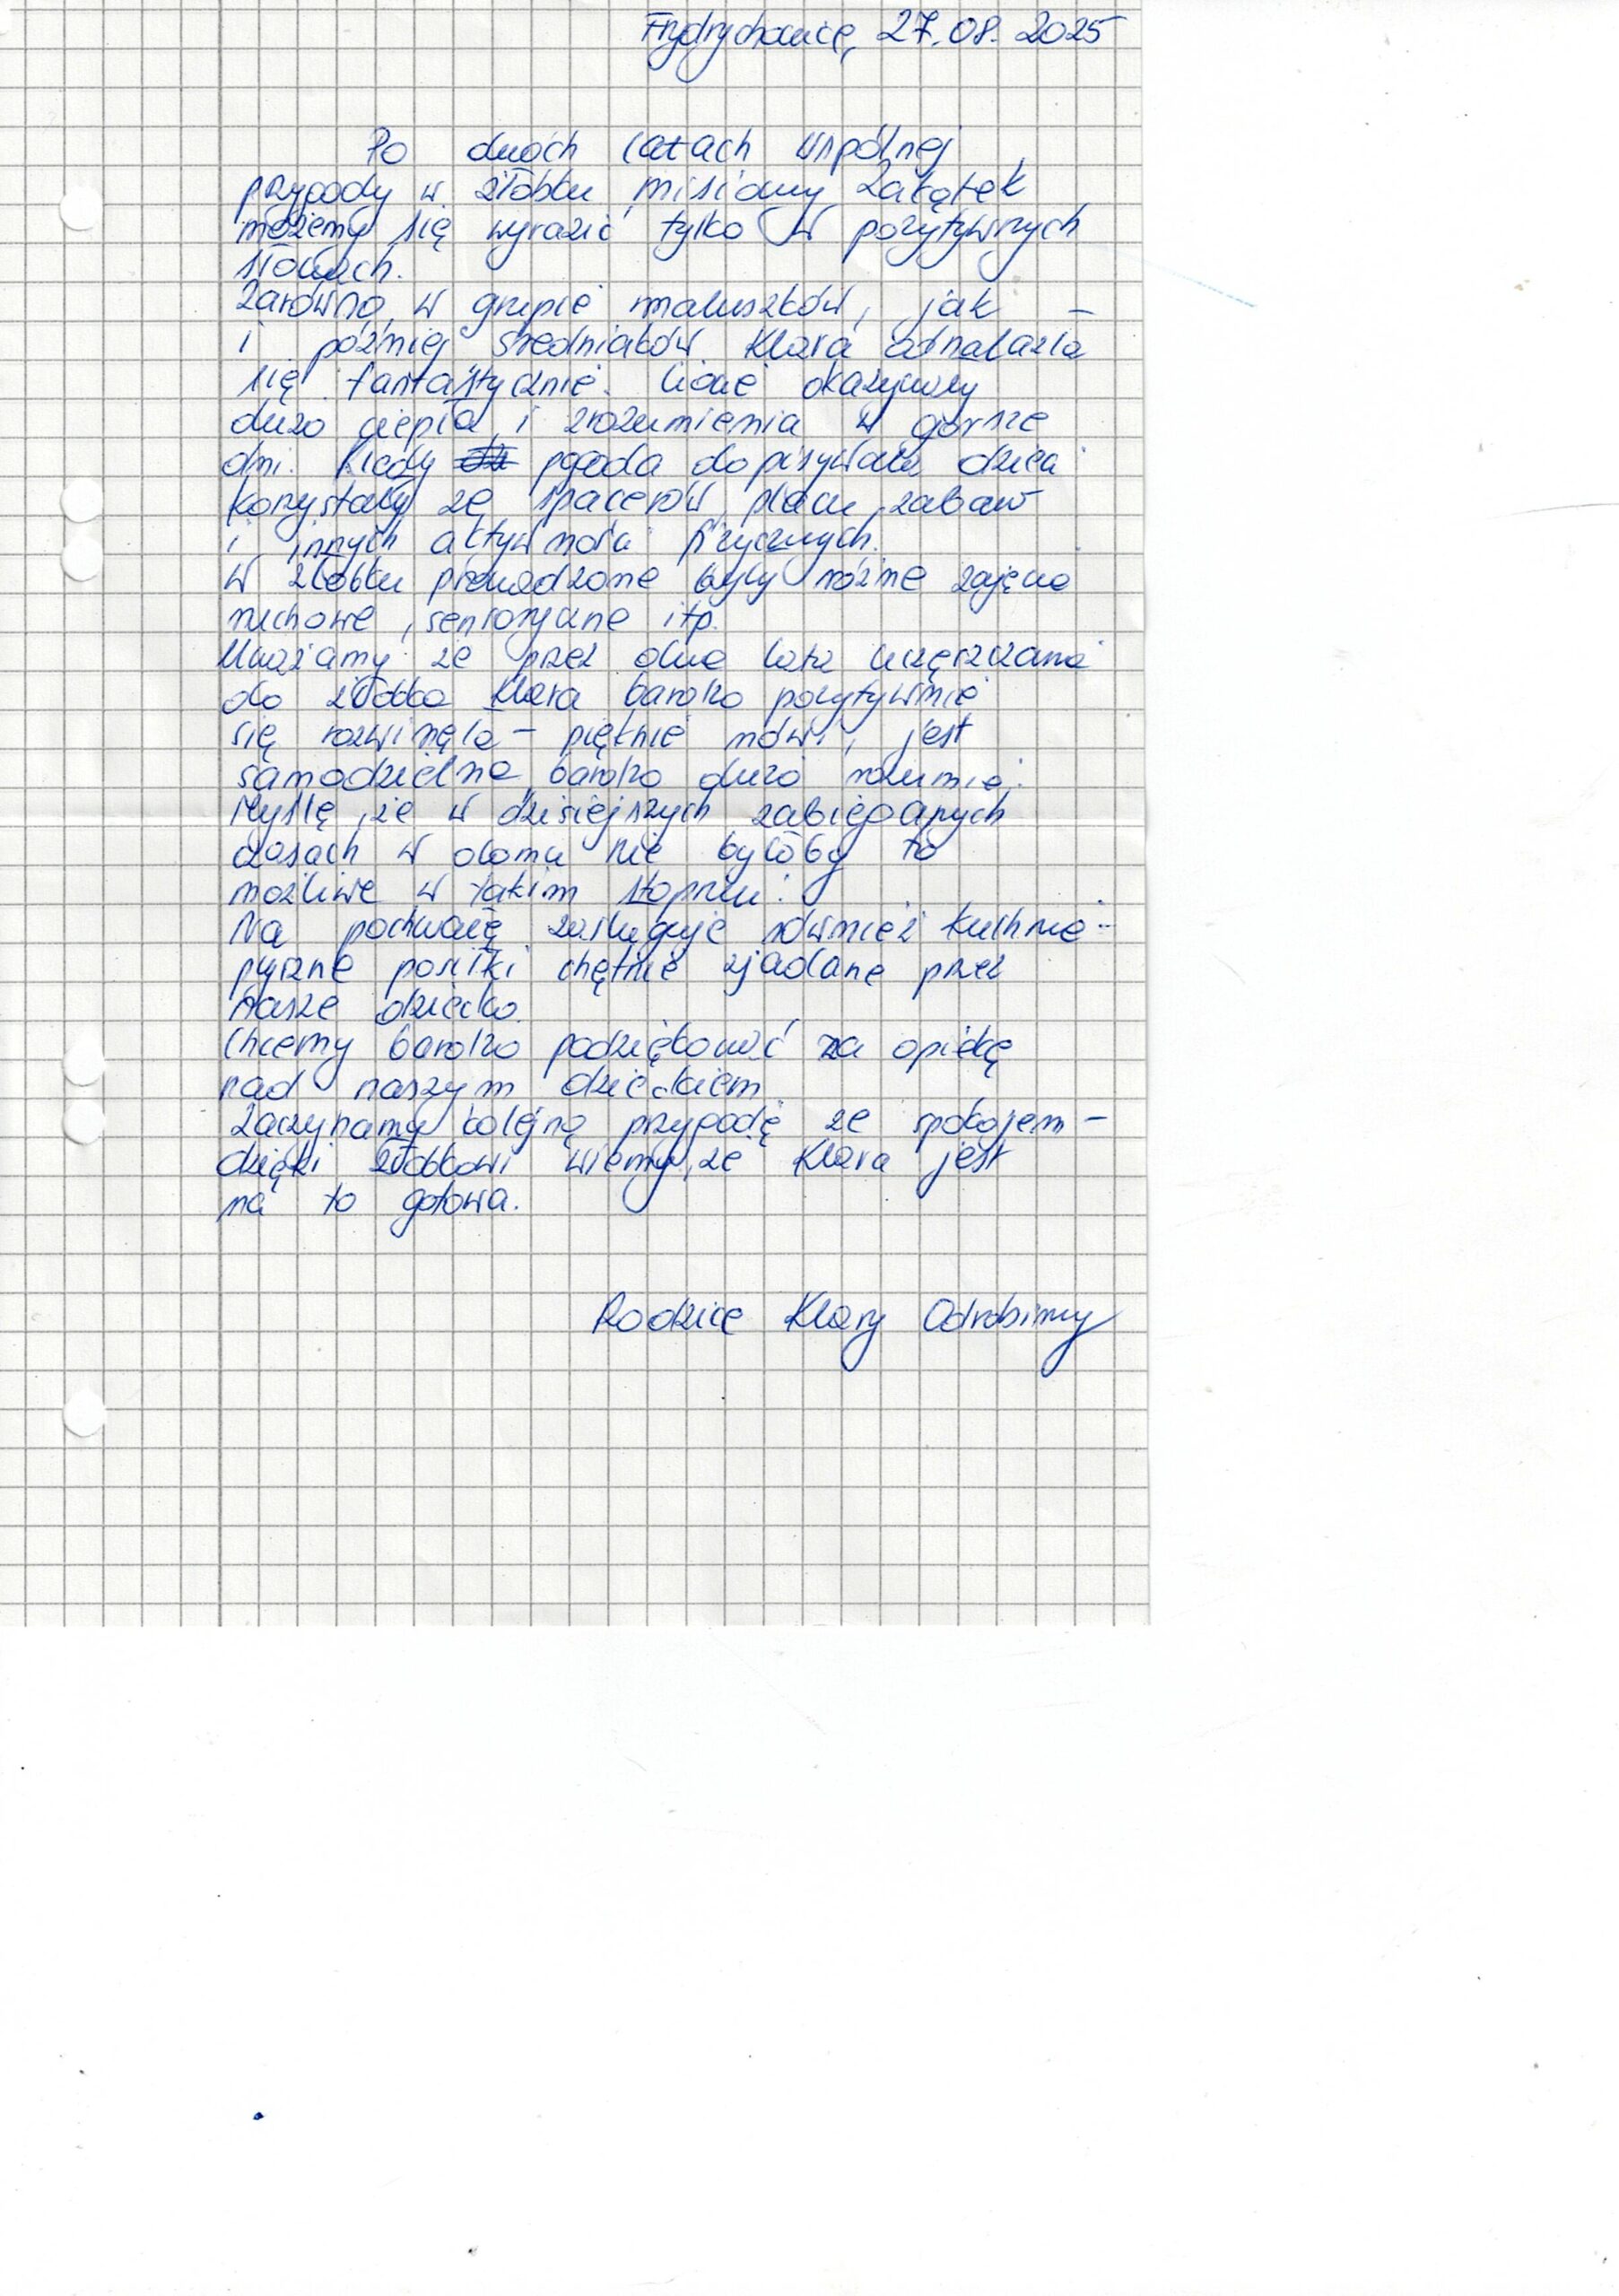 Frydrychowice, 27.08.2025
Po dwóch latach wspólnej
przygody w żłobku misiowy zakątek
możemy się wyrazić tylko w pozytywnych
słowach.
Zarówno w grupie maluszków, jak –
i później średniaków Klara odnalazła
się fantastycznie. Ciocie okazywały
dużo ciepła i zrozumienia w gorsze
dni. Kiedy pogoda dopisywała dzieci
korzystały ze spacerów, placu zabaw
i innych aktywności fizycznych.
W żłobku prowadzone były różne zajęcia
ruchowe, sensoryczne itp.
Uważamy że przez dwa lata uczęszczania
do żłobka Klara bardzo pozytywnie
się rozwinęła – pięknie mówi, jest
samodzielna, bardzo dużo rozumie.
Myślę, że w dzisiejszych zabieganych
czasach w domu nie byłoby to
możliwe w takim stopniu.
Na pochwałę zasługuje również kuchnia –
pyszne posiłki chętnie zjadane przez
nasze dziecko.
Chcemy bardzo podziękować za opiekę
nad naszym dzieckiem
Zaczynamy kolejną przygodę ze spokojem –
dzięki żłobkowi wiemy, że Klara jest
na to gotowa.
Rodzice Klary Odrobiny